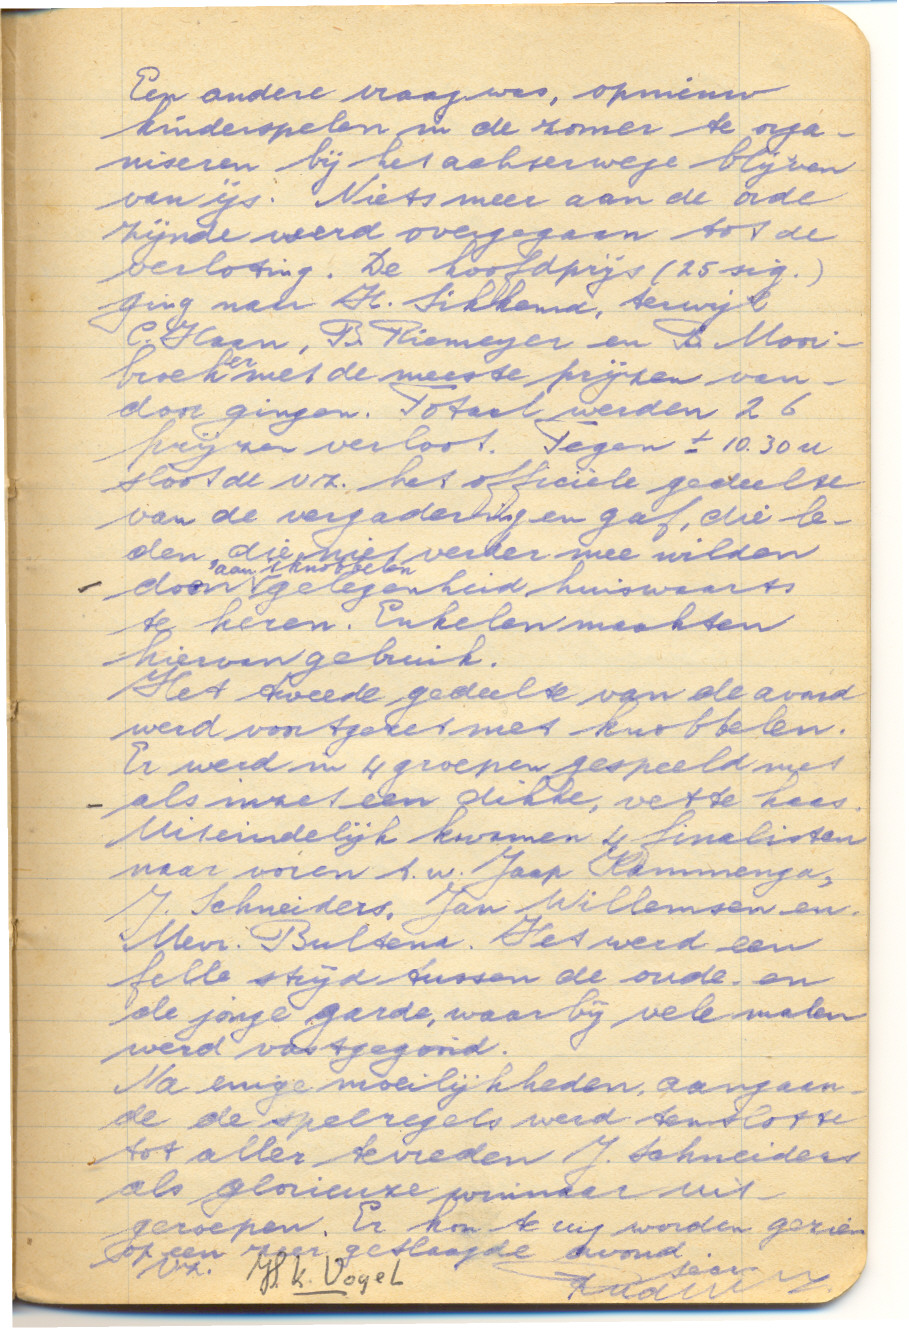 Een andere vraag was, opnieuw
kinderspelen in de zomer te orga-
niseren bij het achterwege blijven
van ijs. Niets meer aan de orde
zijnde werd overgegaan tot de
verloting. De hoofdprijs (25 sig.)
ging naar H. Sikkema, terwijl
C. Haan, B. Riemeyer en Mooi-
broek er met de meeste prijzen van-
door gingen. Totaal werden 26
prijzen verloot. Tegen ± 10.30 u
sloot de vz. het officiële gedeelte
van de vergadering en gaf, die le-
den, die niet verder mee wilden
doen aan 't knobbelen gelegenheid huiswaarts
te keren. Enkelen maakten
hiervan gebruik.
Het tweede gedeelte van de avond
werd voortgezet met knobbelen.
Er werd in 4 groepen gespeeld met
als inzet een dikke, vette haas.
Uiteindelijk kwamen 4 finalisten
naar voren t.w. Jaap Kammenga,
J. Schneiders, Jan Willemsen en
Mevr. Bultena. Het werd een
felle strijd tussen de oude en
de jonge garde, waarbij vele malen
werd vastgegooid.
Na enige moeilijkheden, aangaan-
de de spelregels werd tenslotte
tot aller tevreden J. Schneiders
als glorieuze winnaar uit-
geroepen. Er kon terug worden gezien
op een zeer geslaagde avond
Vz. H.k. Vogel
secr.